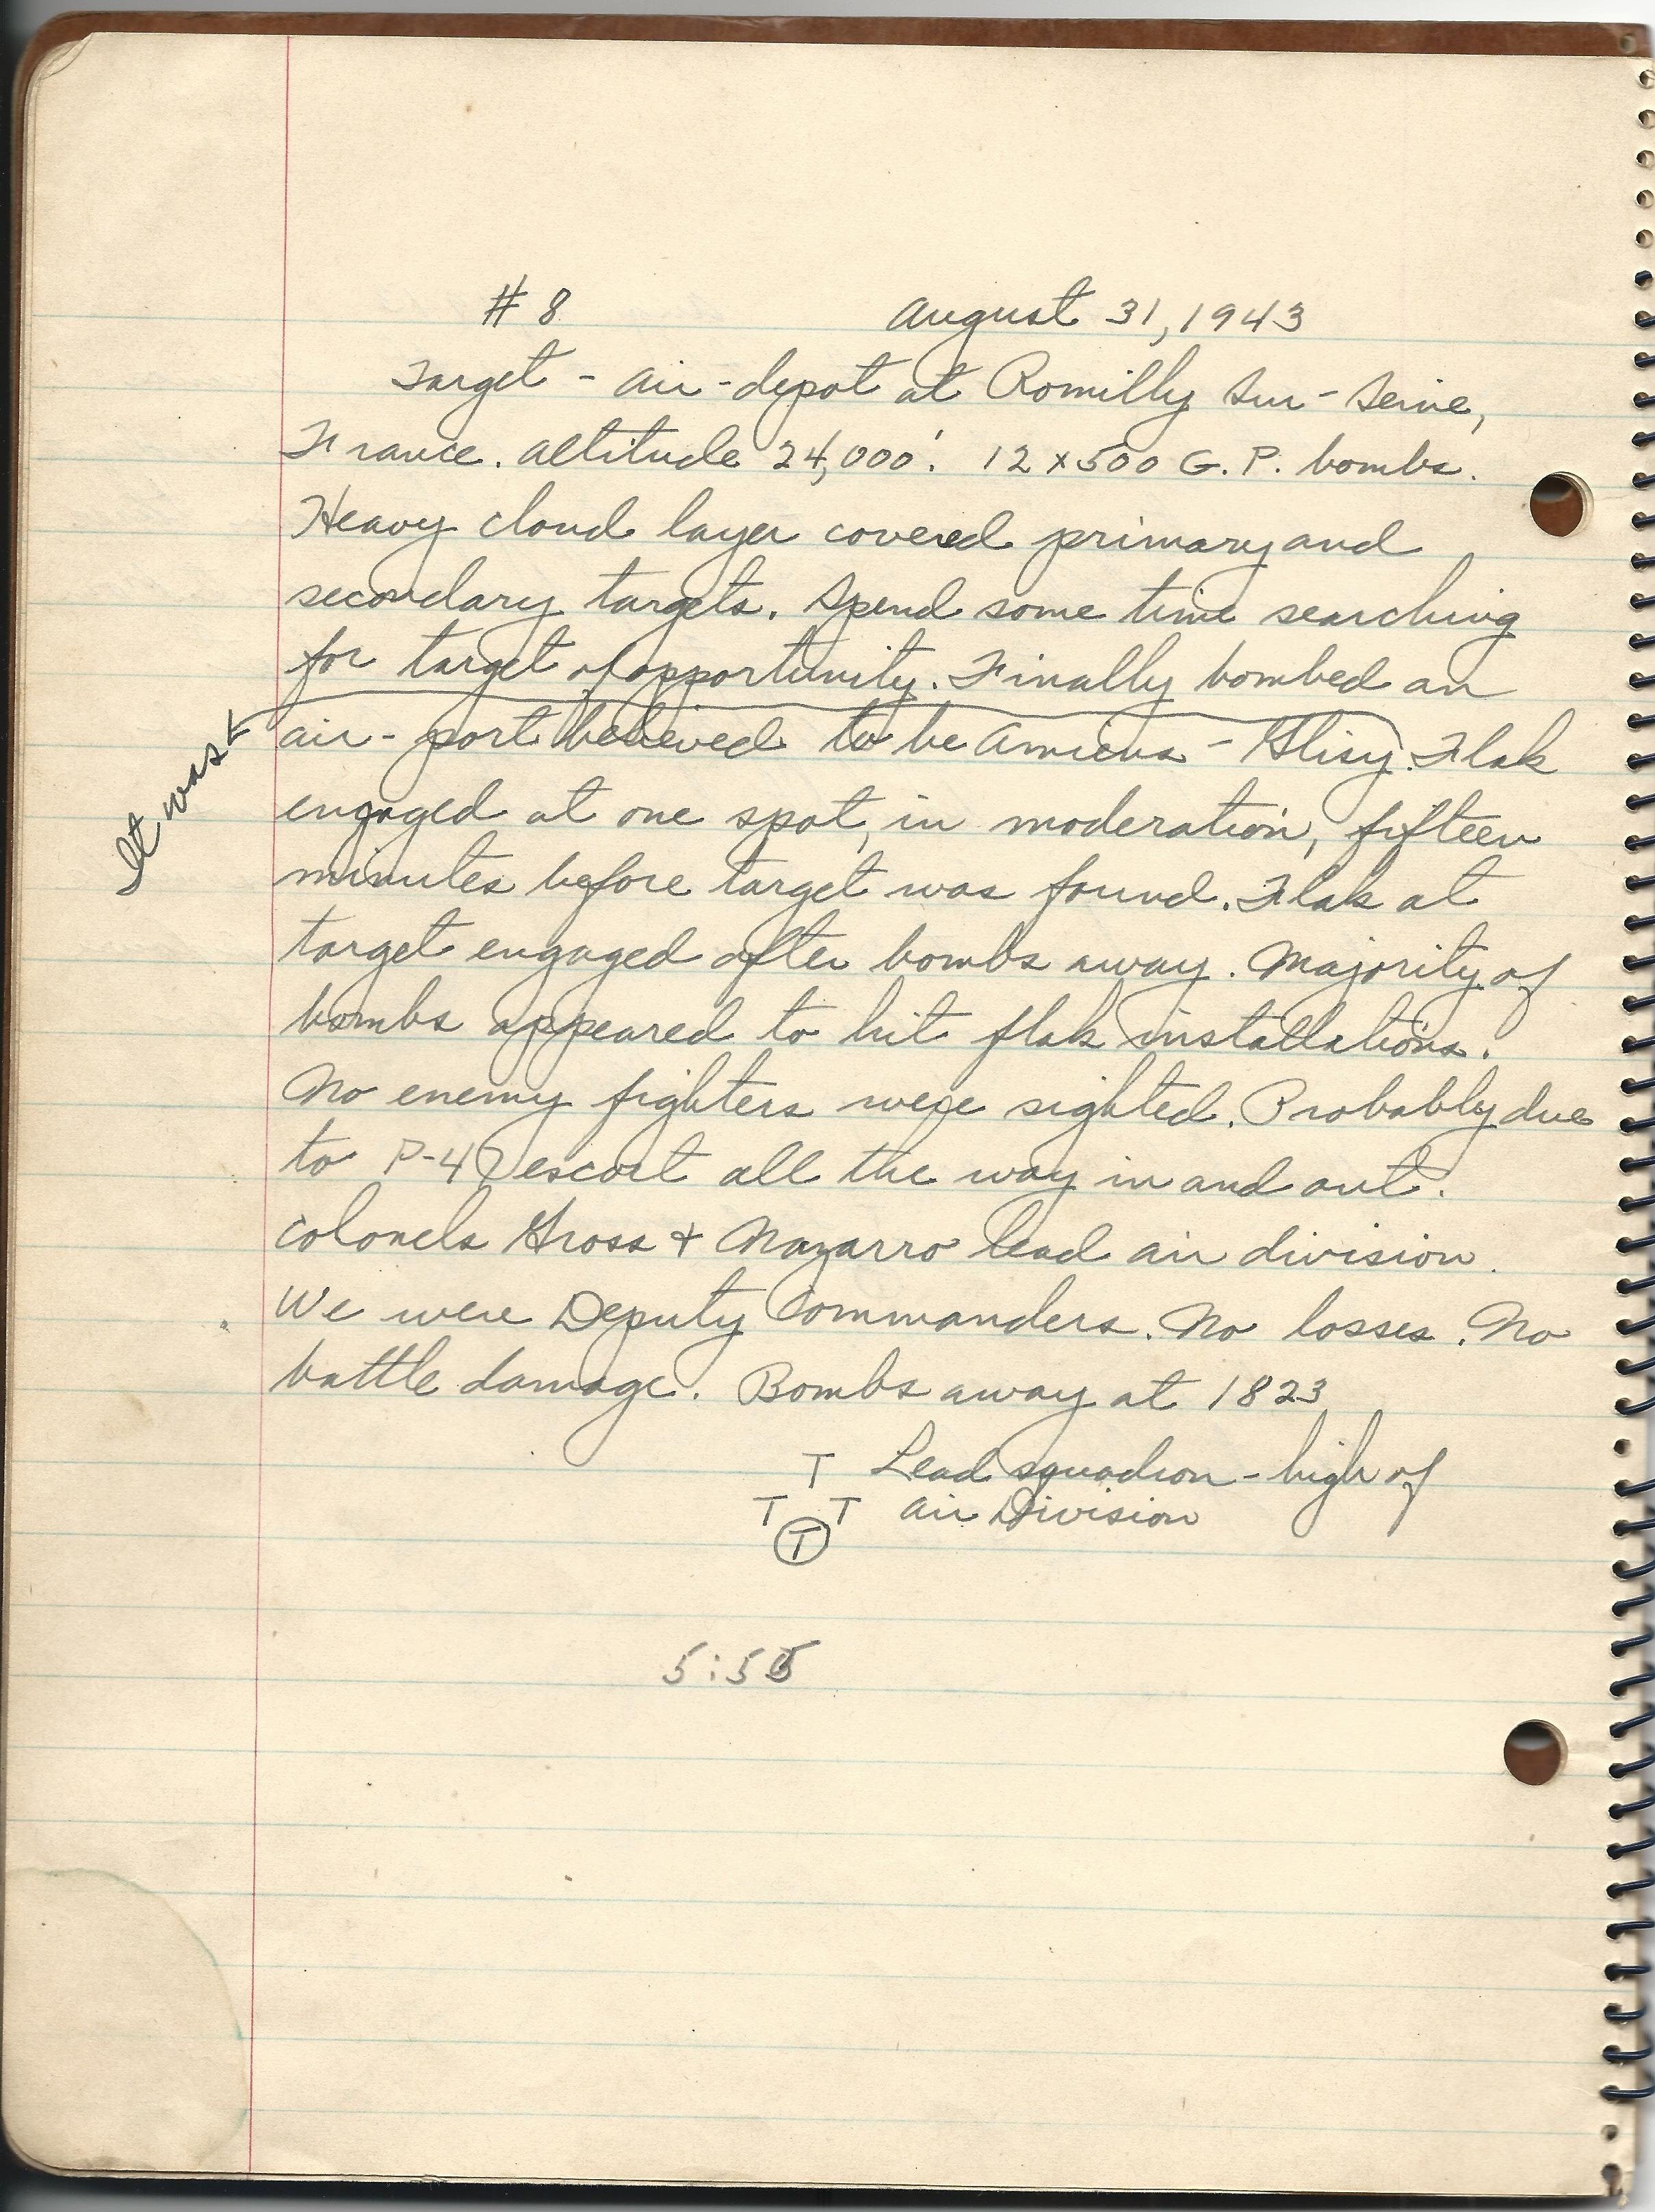 # 8 August 31, 1943
Target - air-depot at Romilly Sur-Seine,
France. Altitude 24,000'. 12 x 500 G.P. bombs.
Heavy cloud layer covered primary and
secondary targets. Spend some time searching
for target of opportunity. Finally bombed an
air-port believed to be Amiens - Glisy. Flak
It was
engaged at one spot, in moderation, fifteen
minutes before target was found. Flak at
target engaged after bombs away. Majority of
bombs appeared to hit flak installations.
No enemy fighters were sighted. Probably due
to P-47 escort all the way in and out.
Colonels Gross + Nazarro lead air division.
We were Deputy Commanders. No losses. No
battle damage. Bombs away at 1823
T Lead squadron - high of
T T Air Division
T
5:55